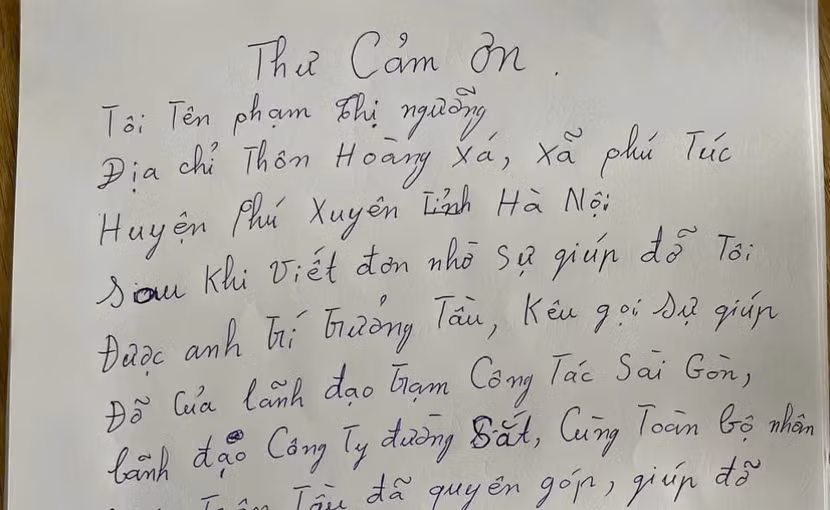 Thư Cảm ơn.
Tôi Tên phạm Thị ngưỡng
Địa chỉ Thôn Hoàng Xá, Xã phú Túc
Huyện Phú Xuyên tỉnh Hà Nội
Sau Khi Viết đơn nhờ sự giúp đỡ Tôi
Được anh trí trưởng Tàu, Kêu gọi sự giúp
Đỡ Của lãnh đạo trạm Công Tác Sài Gòn,
lãnh đạo Công Ty đường Sắt, Cùng Toàn bộ nhân
Tàu đã quyên góp, giúp đỡ